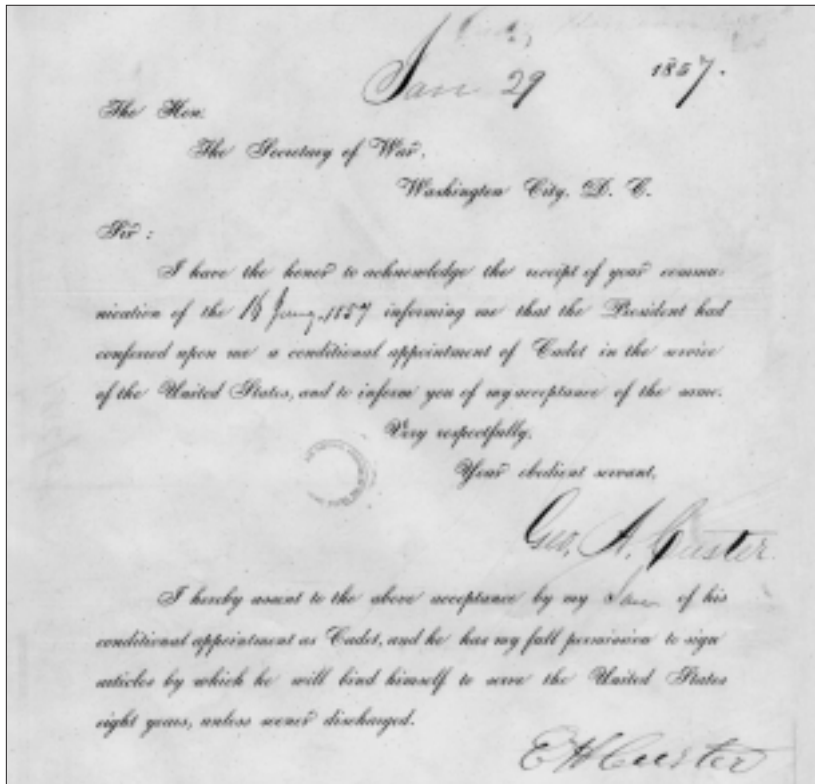 Jan 29 1857.
The Hon.
The Secretary of War,
Washington City, D. C.
Sir :
I have the honor to acknowledge the receipt of your commu-
nication of the 1857 informing me that the President had
conferred upon me a conditional appointment of Cadet in the service
of the United States, and to inform you of my acceptance of the same.
Very respectfully,
Your obedient servant,
Geo. A. Custer
I hereby assent to the above acceptance by my Son of his
conditional appointment as Cadet, and he has my full permission to sign
articles by which he will bind himself to serve the United States
eight years, unless sooner discharged.
E H Custer